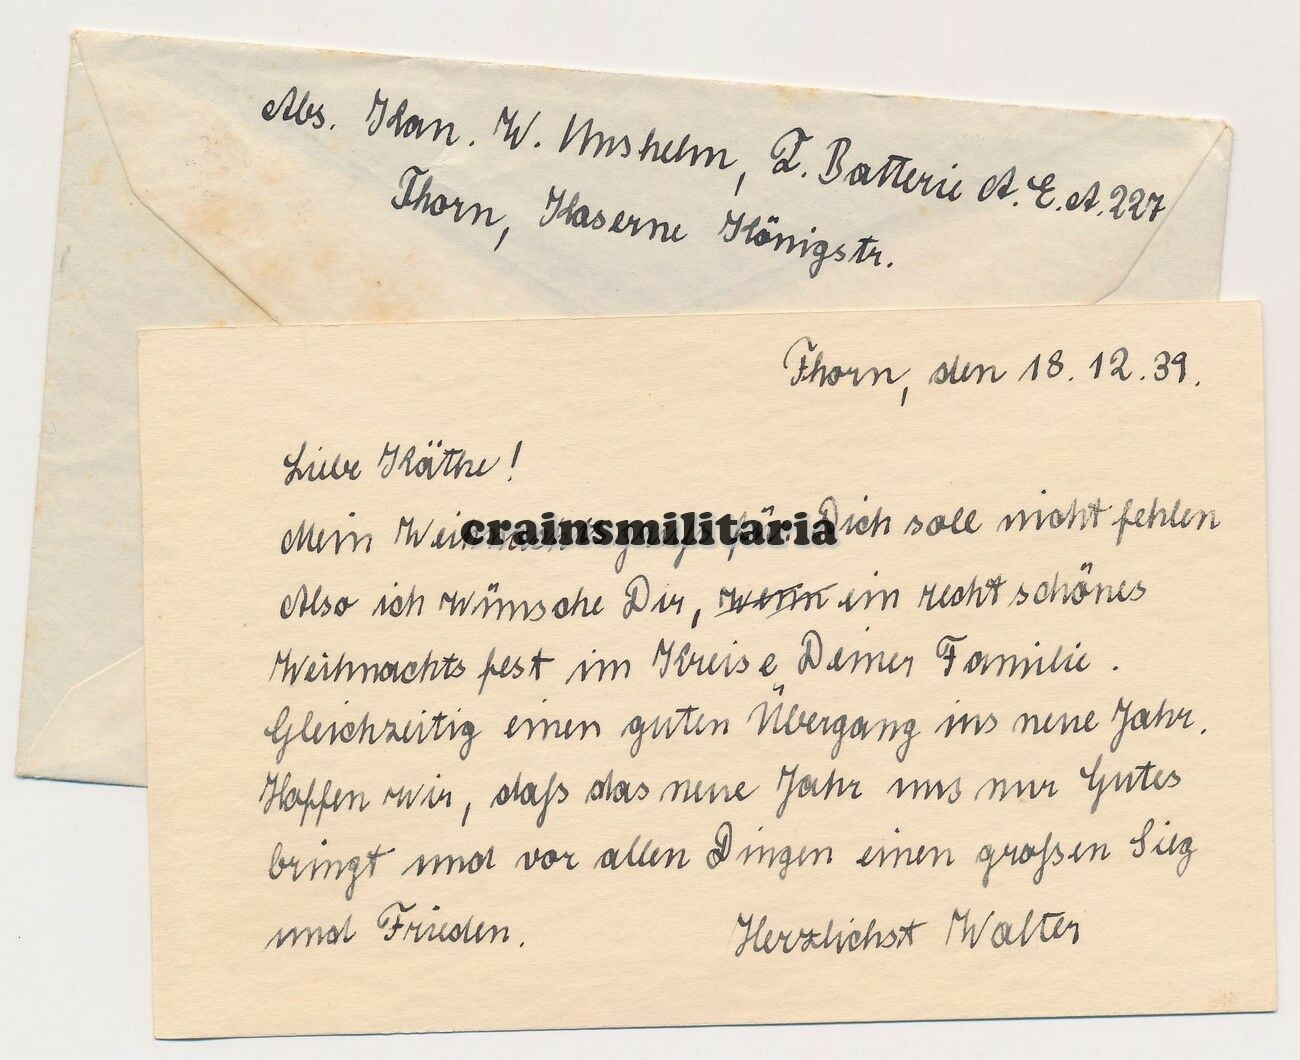 Abs. Kan. W. Unshelm, I. Batterie A.E.A. 227
Thorn, Kaserne Königstr.
Thorn, den 18.12.39.
Liebe Käthe!
Mein Weihnachtsgruß für Dich soll nicht fehlen
crainsmilitaria
Also ich wünsche Dir, wenn ein recht schönes
Weihnachtsfest im Kreise Deiner Familie.
Gleichzeitig einen guten Übergang ins neue Jahr.
Hoffen wir, daß das neue Jahr uns nur Gutes
bringt und vor allen Dingen einen großen Sieg
und Frieden. Herzlichst Walter